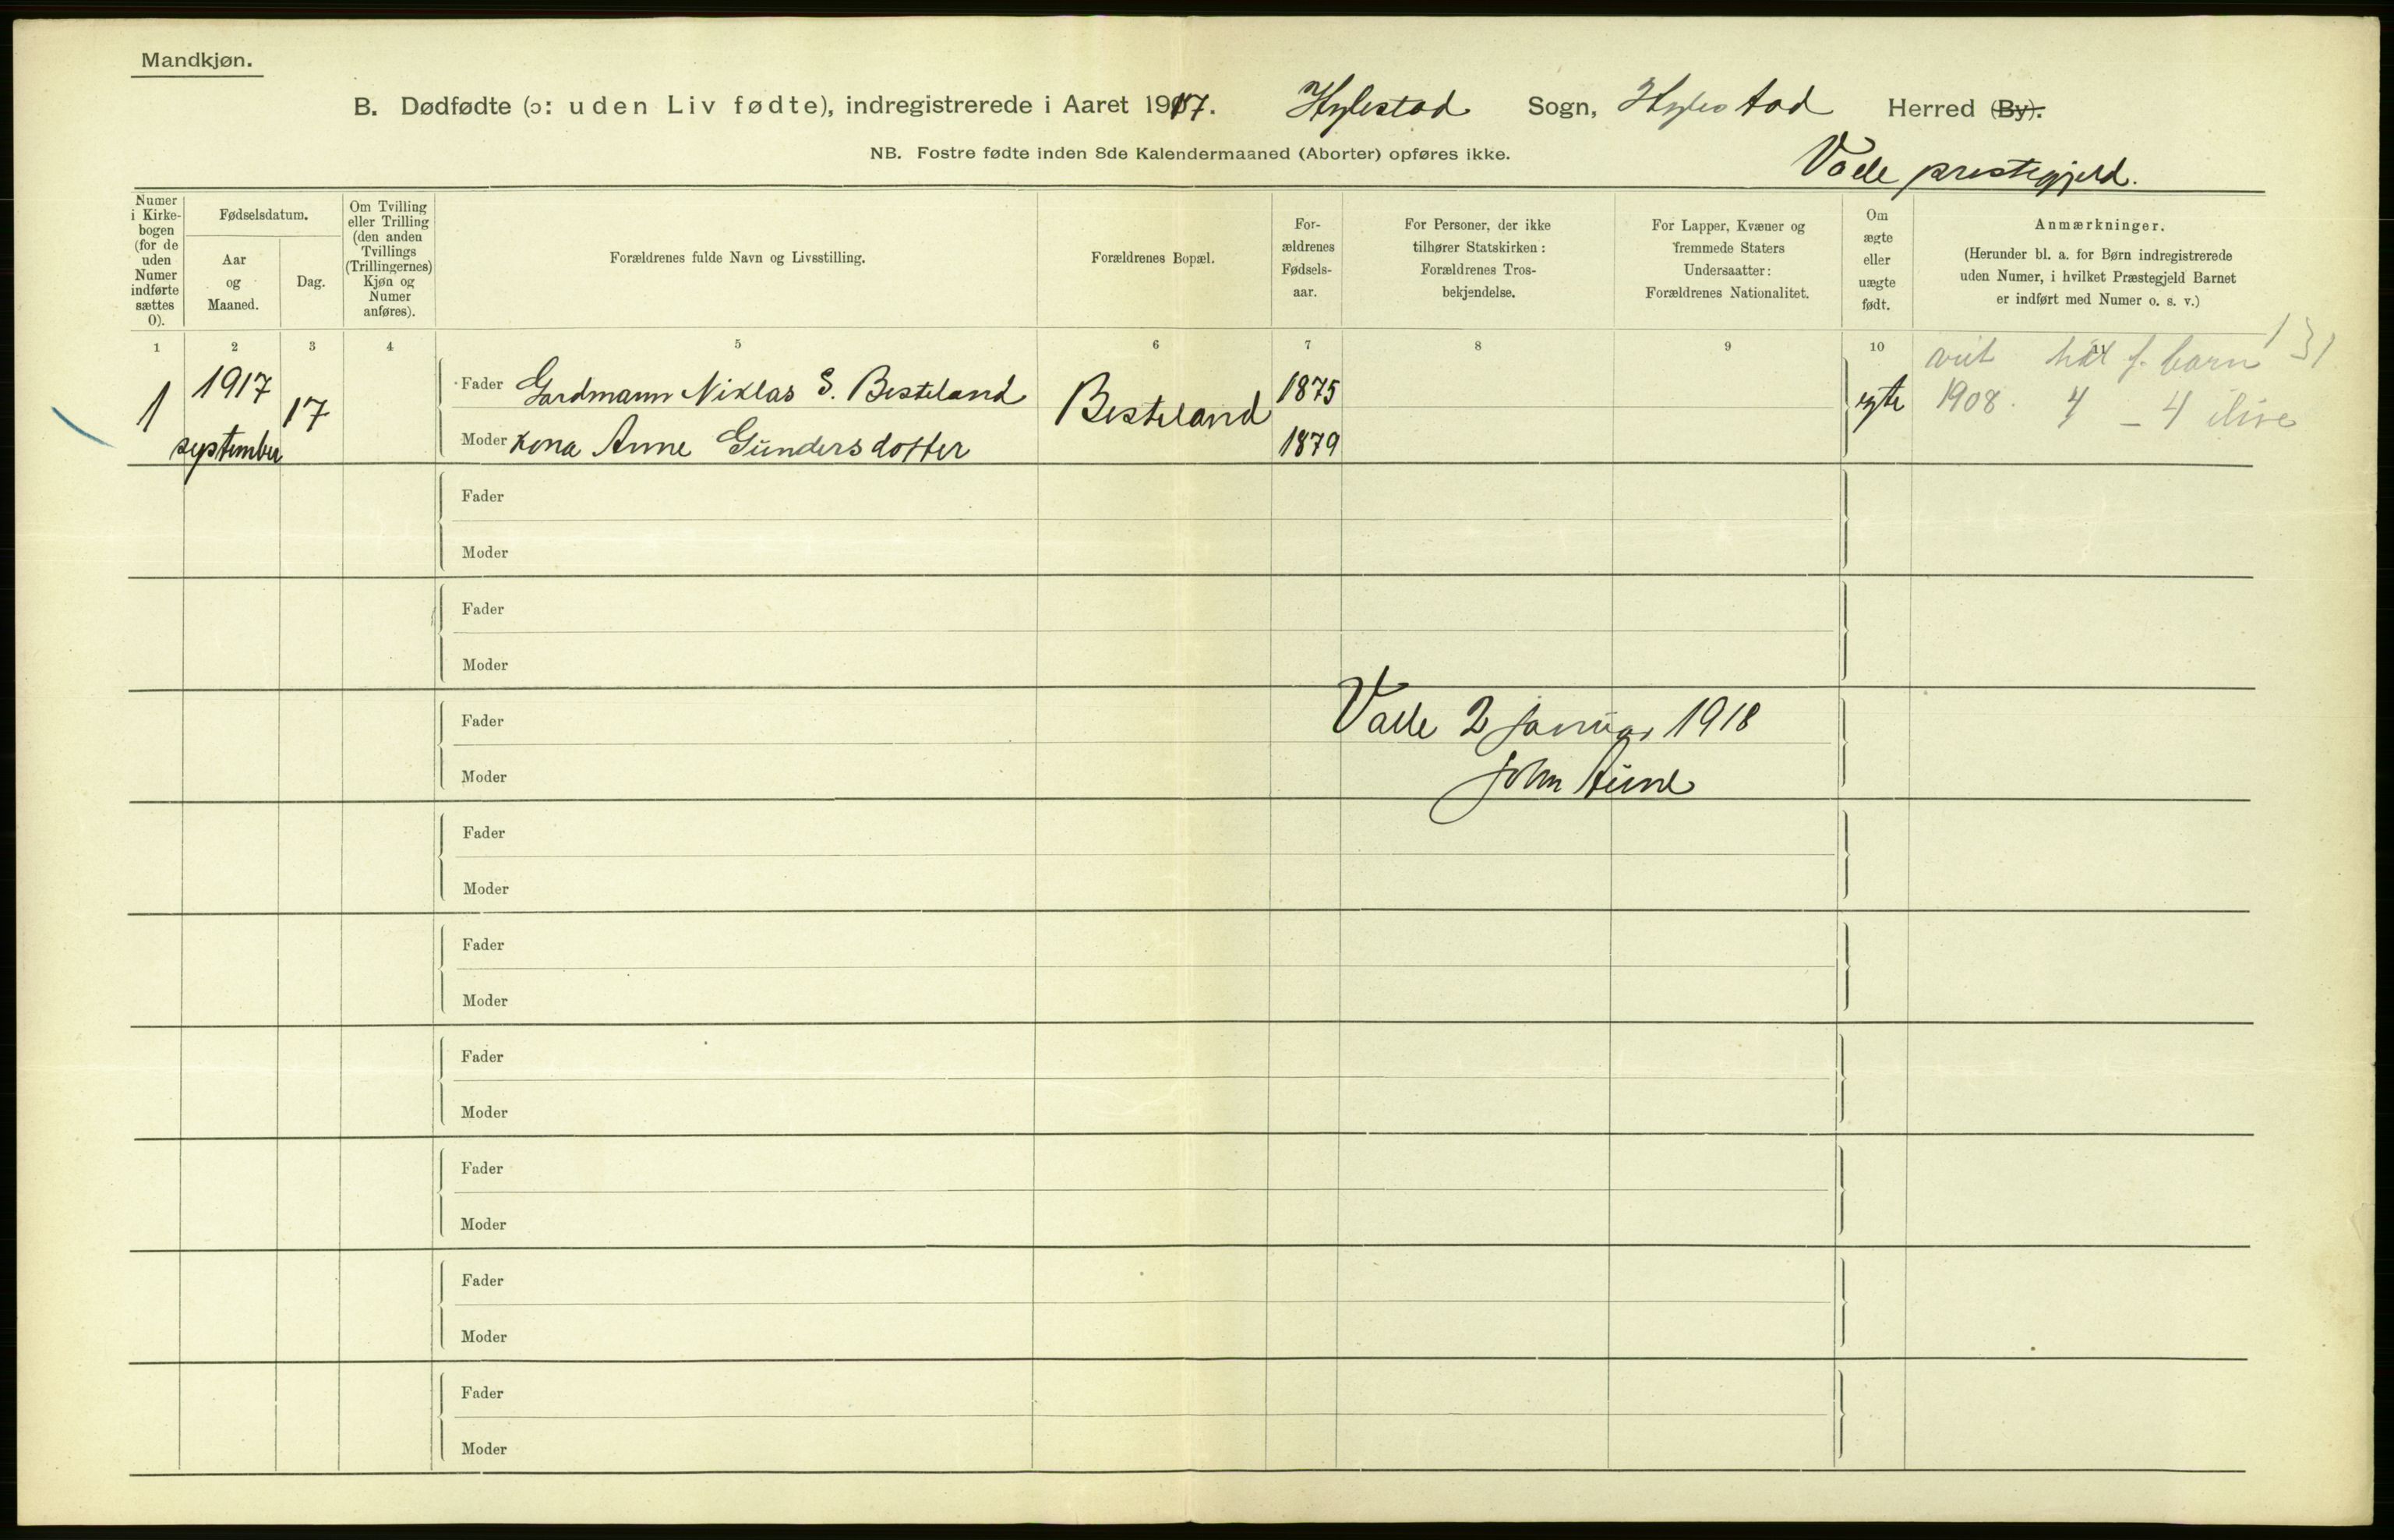 Mandkjøn.
B. Dødfødte (ɔ: uden Liv fødte), indregistrerede i Aaret 1917. Hylestad Sogn, Hylestad Herred (By).
NB. Fostre fødte inden 8de Kalendermaaned (Aborter) opføres ikke.
Valle prestegjeld.
Numer i Kirke-bogen (for de uden Numer indførte sættes 0).
Fødselsdatum.
Aar og Maaned.
Dag.
Om Tvilling eller Trilling (den anden Tvillings (Trillingernes) Kjøn og Numer anføres).
Forældrenes fulde Navn og Livsstilling.
Forældrenes Bopæl.
For-ældrenes Fødsels-aar.
For Personer, der ikke tilhører Statskirken: Forældrenes Tros-bekjendelse.
For Lapper, Kvæner og fremmede Staters Undersaatter: Forældrenes Nationalitet.
Om ægte eller uægte født.
Anmærkninger.
(Herunder bl. a. for Børn indregistrerede uden Numer, i hvilket Præstegjeld Barnet er indført med Numer o. s. v.)
1 2 3 4 5 6 7 8 9 10 11
131
1 1917 september 17
Fader Gardmann Niklas S. Besteland
Moder kona Anne Gundersdotter
Besteland
1875
1879
egte
viet hat f. barn
1908. 4 – 4 ilive
Fader
Moder
Fader
Moder
Fader
Valle 2 januar 1918
Moder
John Aune
Fader
Moder
Fader
Moder
Fader
Moder
Fader
Moder
Fader
Moder
Fader
Moder